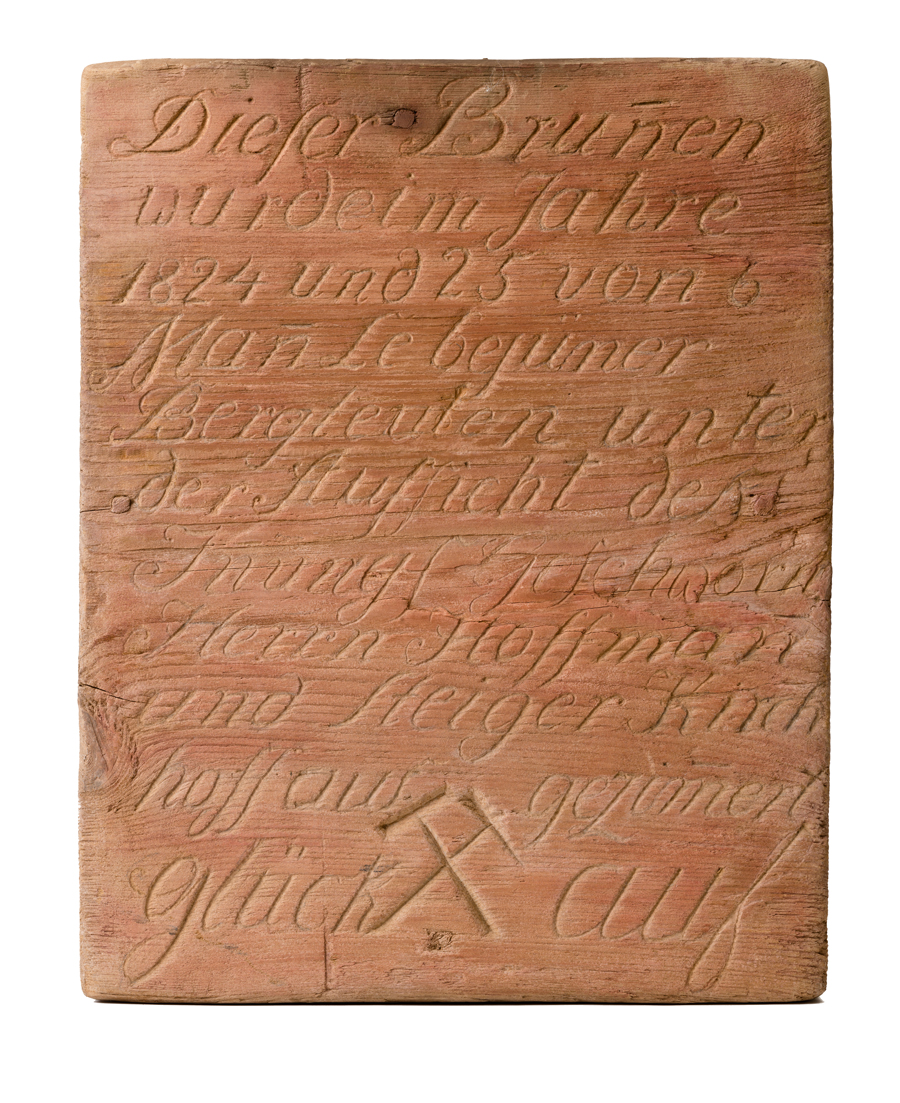 Dieſer Brun̄en
wurde im Jahre
1824 und 25 von 6
Man̄ Lebejüner
Bergleuten unter
der Aufſicht des
Inungſ Geſchworn
Herrn Hoffman
und Steiger Kirch
hoff aus gezim̄ert
glück auf